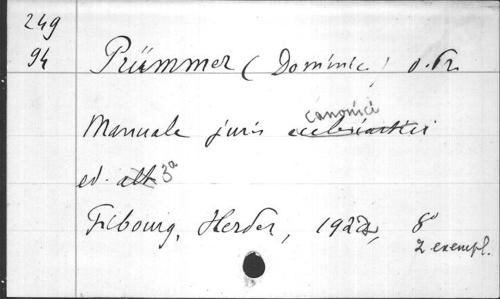 249
94
Prümmer (Dominic) O. Pr.
canonici
Manuale juris ecclesiastici
ed. alt 3a
Fribourg, Herder, 1922, 8°
2 exempl.